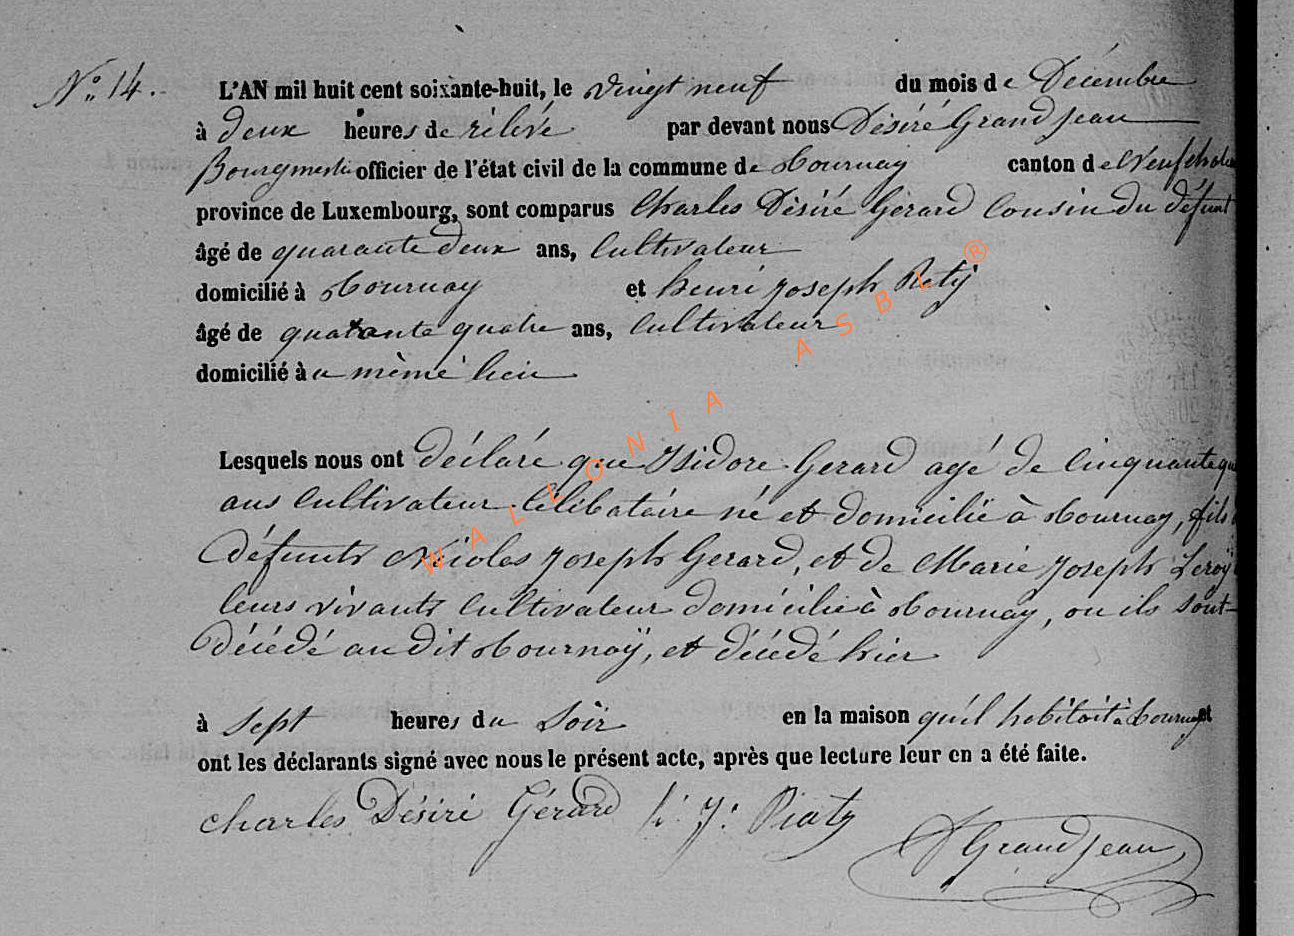 N° 14.
L'AN mil huit cent soixante-huit, le vingt neuf du mois de Décembre
à deux heures de rélévé par devant nous Désiré Grandjean
Bourgmestre officier de l'état civil de la commune de Tournay canton de Neufchate
province de Luxembourg, sont comparus Charles Désiré Gerard Cousin du défunt
âgé de quarante deux ans, Cultivateur
domicilié à Tournay et henri joseph
âgé de quarante quatre ans, Cultivateur
domicilié à u mème lieu
Lesquels nous ont déclaré que Isidore Gerard agé de Cinquante
ans Cultivateur Célibataire né et domicilié à Tournay, fils
Défunts Nicolas joseph Gerard, et de Marie joseph Leroÿ
leurs vivants Cultivateur domicilié à Tournay, ou ils sont
Décédé au dit Tournaÿ, et décédé hier
à Sept heures du Soir en la maison qu'il habitait à Tournay et
ont les déclarants signé avec nous le présent acte, après que lecture leur en a été faite.
charles Désiré Gérard h. j. Piaty
D Grandjean
WALLONIA ASBL ®